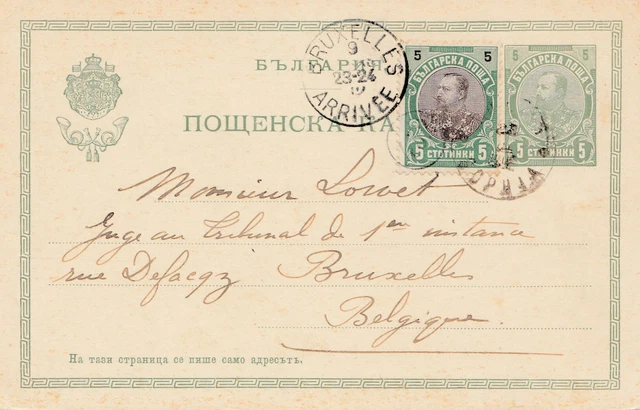 БЪЛГАРИЯ
BRUXELLES
9
23-24
ARRIVÉE
5 5
БЪЛГАРСКА ПОЩА
5 СТОТИНКИ 5
БЪЛГАРСКА ПОЩА
5 СТОТИНКИ 5
ПОЩЕНСКА КА
Monsieur Lowet
Juge au tribunal de 1ere instance
rue Defacqz Bruxelles
Belgique
На тази страница се пише само адресътъ.